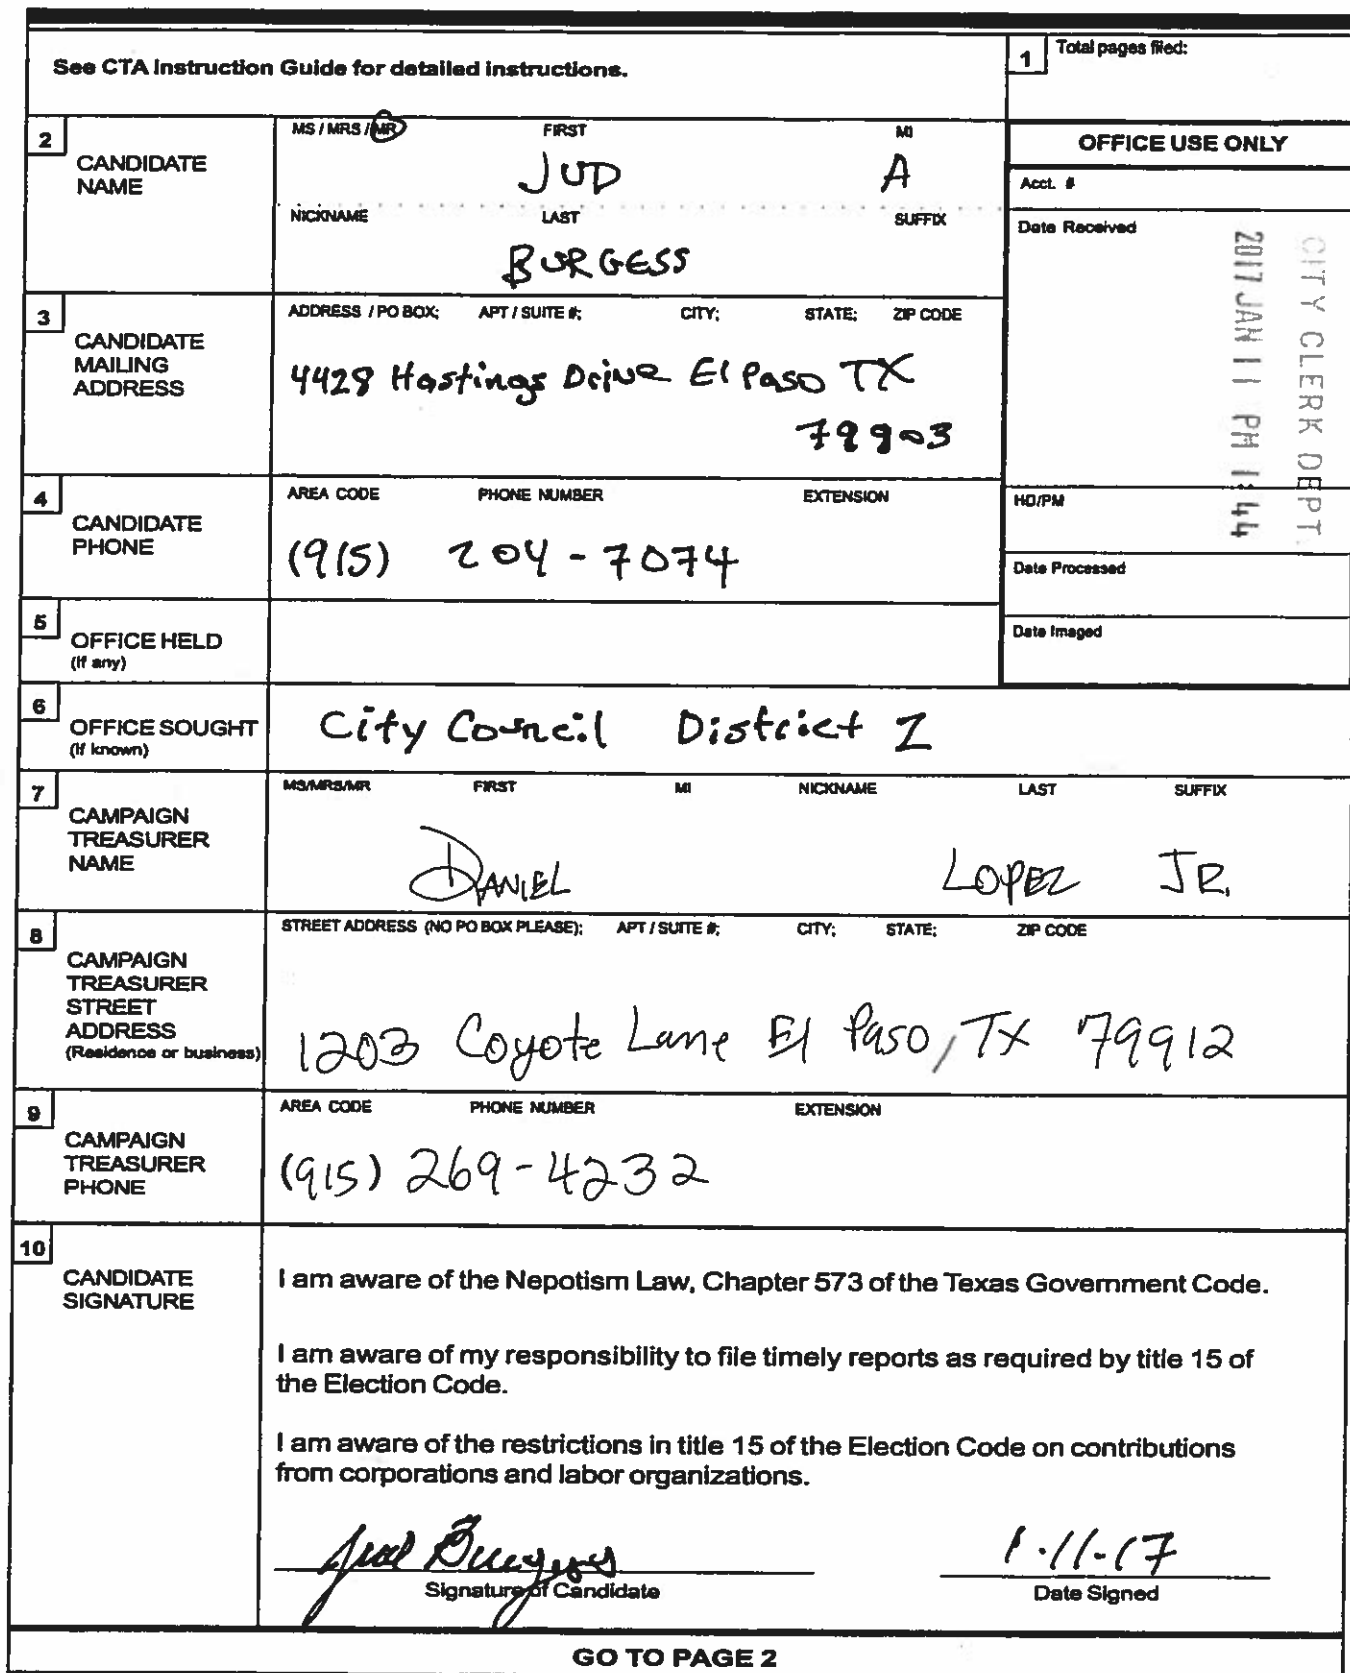 See CTA Instruction Guide for detailed instructions.
1 Total pages filed:
2 CANDIDATE NAME
MS / MRS / MR FIRST MI
JUD A
NICKNAME LAST SUFFIX
BURGESS
OFFICE USE ONLY
Acct. #
Date Received
CITY CLERK DEPT.
2017 JAN 11 PM 1:44
HD/PM
Date Processed
Date Imaged
3 CANDIDATE MAILING ADDRESS
ADDRESS / PO BOX; APT / SUITE #; CITY; STATE; ZIP CODE
4428 Hastings Drive El Paso TX
79903
4 CANDIDATE PHONE
AREA CODE PHONE NUMBER EXTENSION
(915) 204-7074
5 OFFICE HELD
(If any)
6 OFFICE SOUGHT
(If known)
City Council District 2
7 CAMPAIGN TREASURER NAME
MS/MRS/MR FIRST MI NICKNAME LAST SUFFIX
DANIEL LOPEZ JR.
8 CAMPAIGN TREASURER STREET ADDRESS
(Residence or business)
STREET ADDRESS (NO PO BOX PLEASE); APT / SUITE #; CITY; STATE; ZIP CODE
1203 Coyote Lane El Paso, TX 79912
9 CAMPAIGN TREASURER PHONE
AREA CODE PHONE NUMBER EXTENSION
(915) 269-4232
10 CANDIDATE SIGNATURE
I am aware of the Nepotism Law, Chapter 573 of the Texas Government Code.
I am aware of my responsibility to file timely reports as required by title 15 of
the Election Code.
I am aware of the restrictions in title 15 of the Election Code on contributions
from corporations and labor organizations.
Jud Burgess 1-11-17
Signature of Candidate Date Signed
GO TO PAGE 2